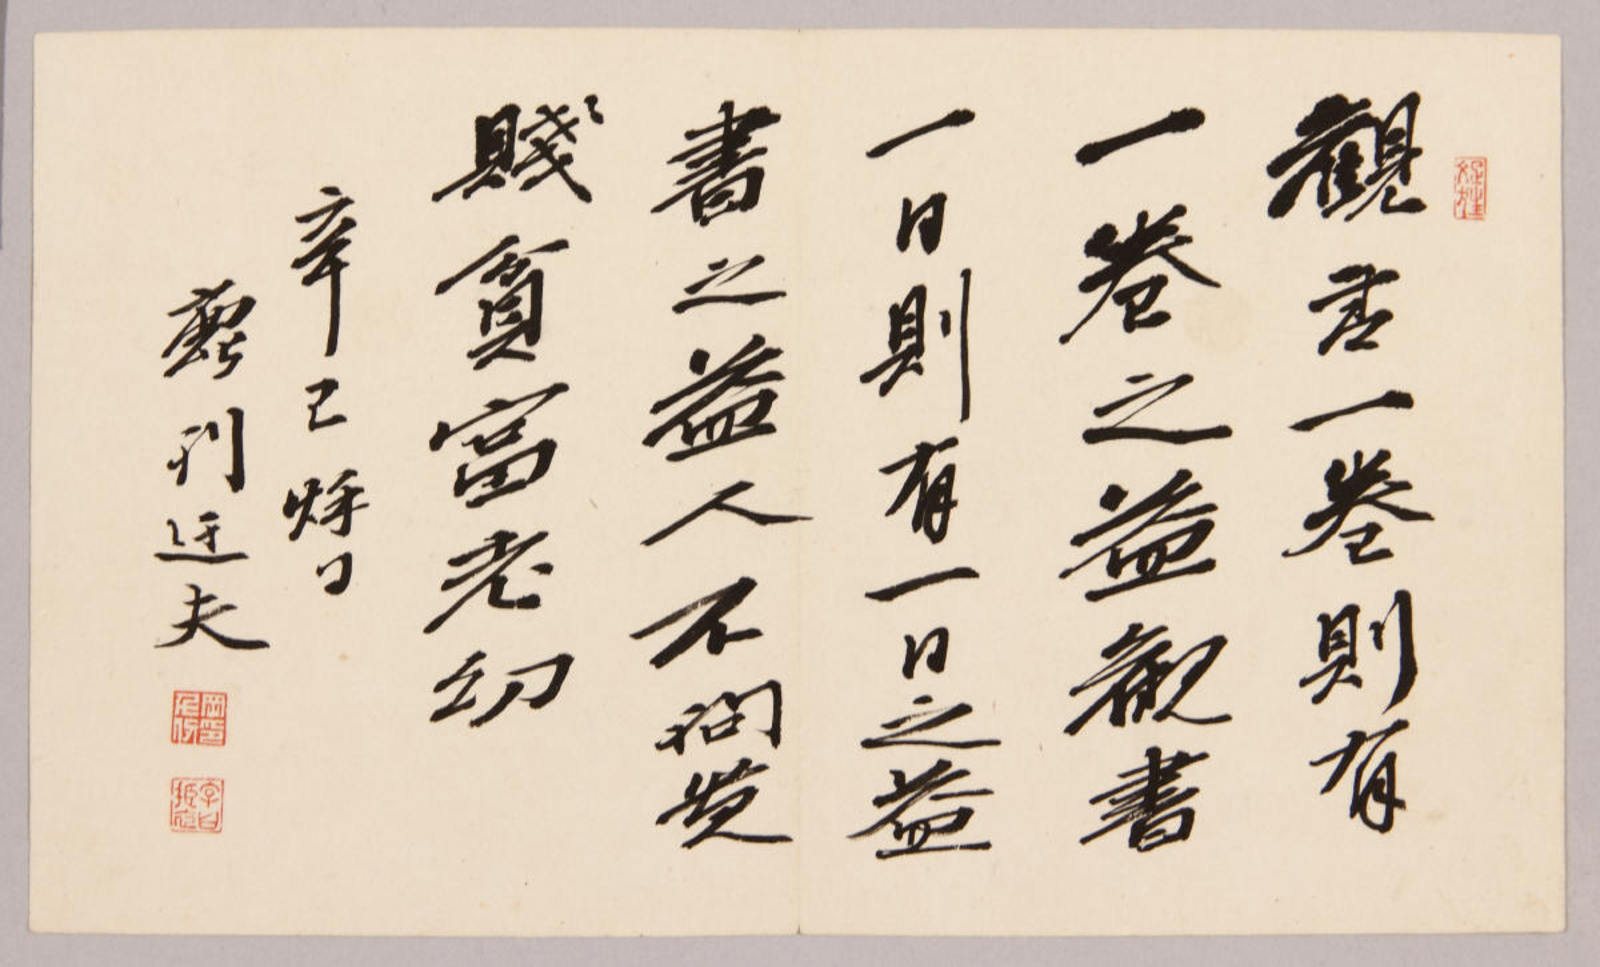 觀書一卷則有
一卷之益觀書
一日則有一日之益
書之益人不問貴
賤貧富老幼
辛巳
迂夫